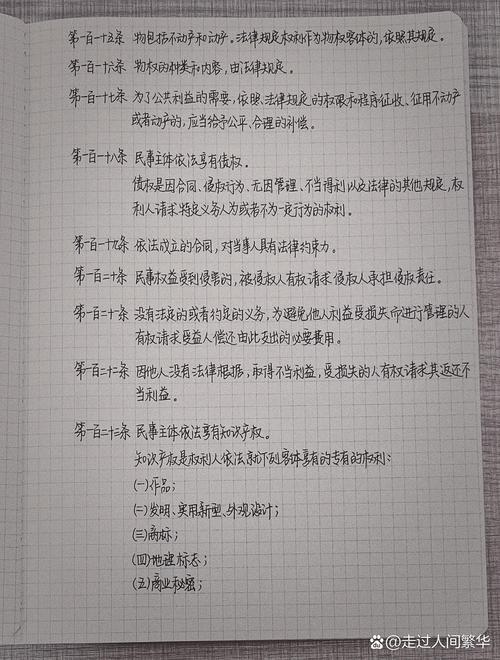 第一百一十五条 物包括不动产和动产。法律规定权利作为物权客体的，依照其规定。
第一百一十六条 物权的种类和内容，由法律规定。
第一百一十七条 为了公共利益的需要，依照法律规定的权限和程序征收、征用不动产
或者动产的，应当给予公平、合理的补偿。
第一百一十八条 民事主体依法享有债权。
债权是因合同、侵权行为、无因管理、不当得利以及法律的其他规定，权
利人请求特定义务人为或者不为一定行为的权利。
第一百一十九条 依法成立的合同，对当事人具有法律约束力。
第一百二十条 民事权益受到侵害的，被侵权人有权请求侵权人承担侵权责任。
第一百二十一条 没有法定的或者约定的义务，为避免他人利益受损失而进行管理的人
有权请求受益人偿还由此支出的必要费用。
第一百二十二条 因他人没有法律根据，取得不当利益，受损失的人有权请求其返还不
当利益。
第一百二十三条 民事主体依法享有知识产权。
知识产权是权利人依法就下列客体享有的专有的权利：
(一)作品；
(二)发明、实用新型、外观设计；
(三)商标；
(四)地理标志；
(五)商业秘密；
@走过人间繁华